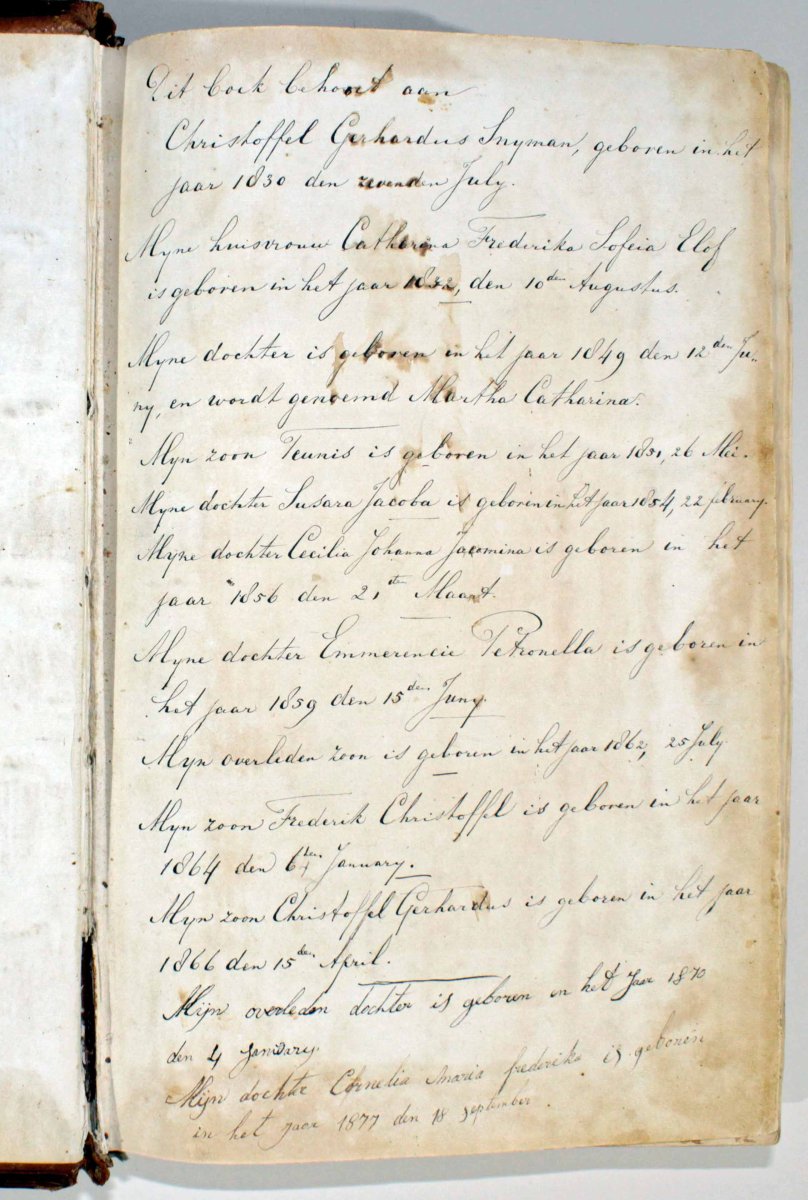 Dit boek behoort aan
Christoffel Gerhardus Snyman, geboren in het
jaar 1830 den zevenden July.
Myne huisvrouw Catherina Frederika Sofeia Elof
is geboren in het jaar 1832, den 10den Augustus.
Myne dochter is geboren in het jaar 1849 den 12den Ju„
ny, en wordt genoemd Martha Catharina.
Myn zoon Teunis is geboren in het jaar 1851, 26 Mei.
Myne dochter Susara Jacoba is geboren in het jaar 1854, 22 february.
Myne dochter Cecilia Johanna Jacomina is geboren in het
jaar 1856 den 21ste Maart.
Myne dochter Emmerencie Petronella is geboren in
het jaar 1859 den 15den Juny.
Myn overleden zoon is geboren in het jaar 1862, 25 July
Myn zoon Frederik Christoffel is geboren in het jaar
1864 den 6den January.
Myn zoon Christoffel Gerhardus is geboren in het jaar
1866 den 15den April.
Mijn overleden dochter is geboren in het Jaar 1870
den 4 January.
Mijn dochter Cornelia Maria frederika is geboren
in het jaar 1877 den 18 september